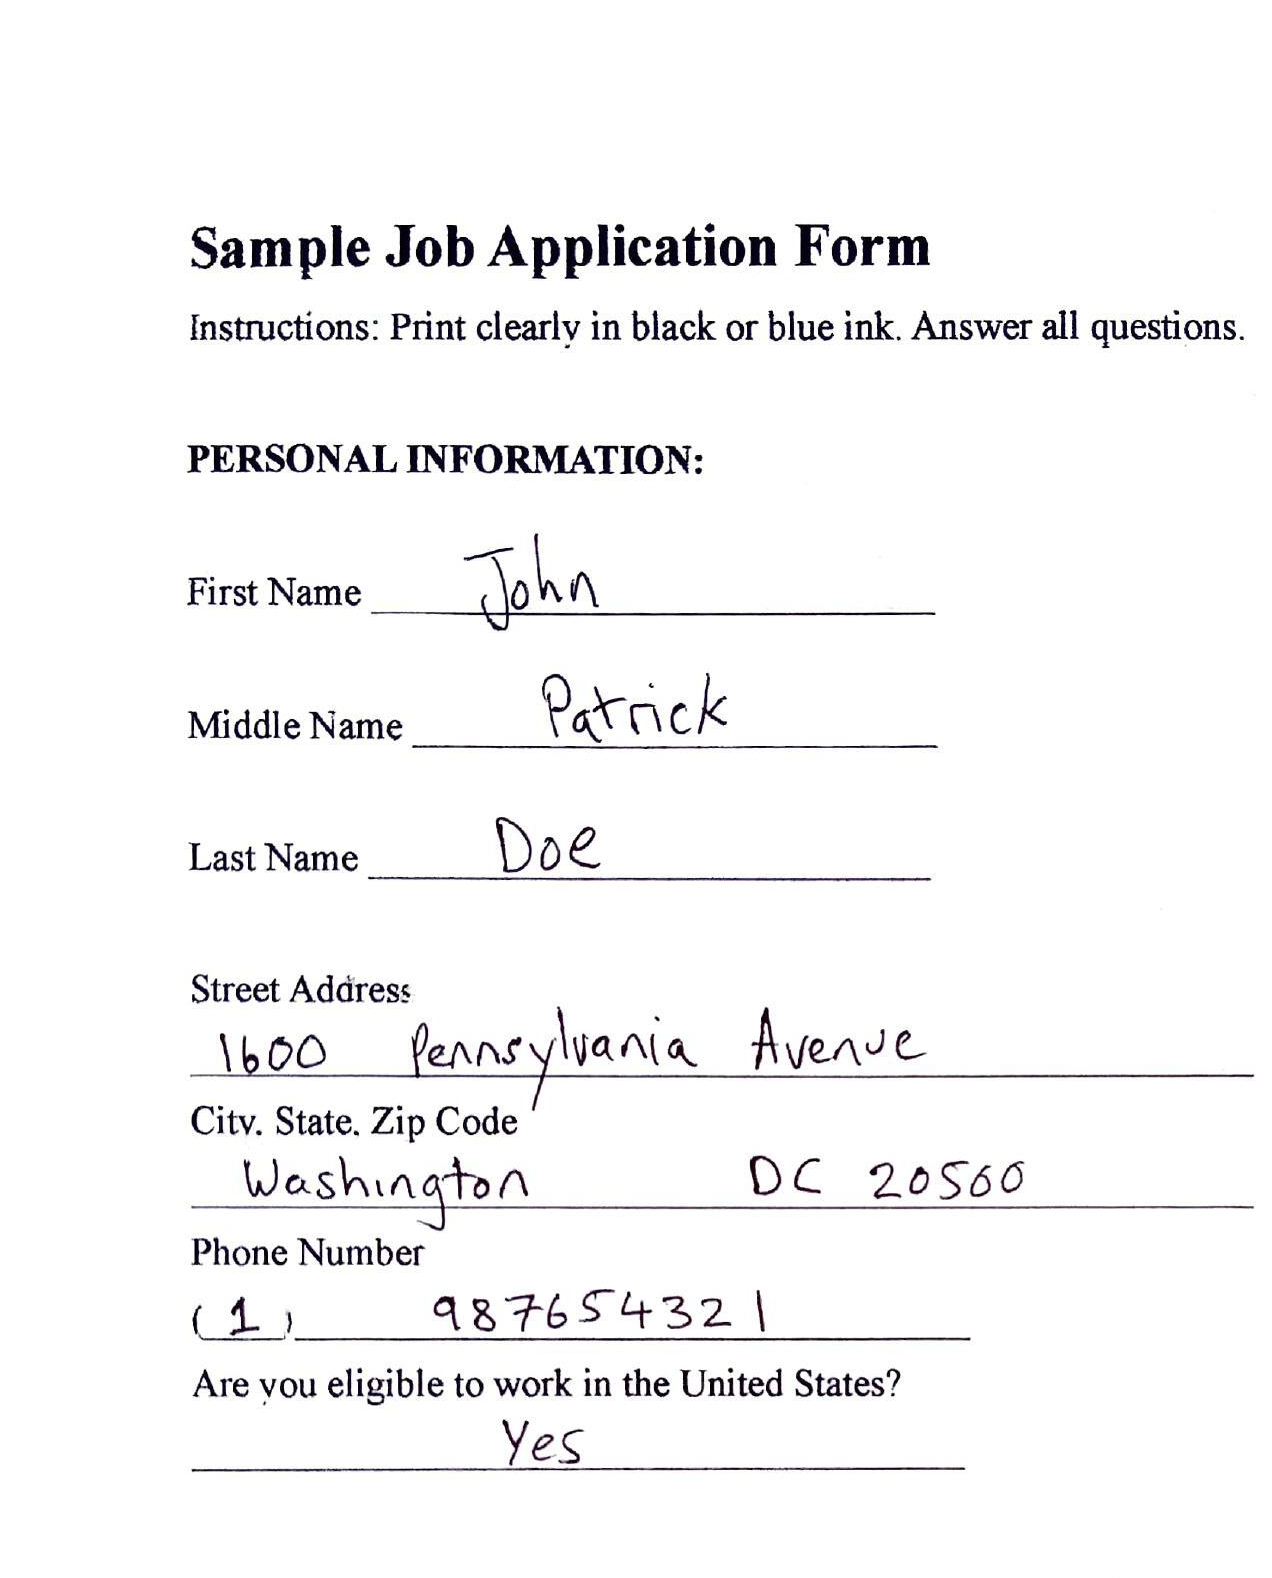 Sample Job Application Form
Instructions: Print clearly in black or blue ink. Answer all questions.
PERSONAL INFORMATION:
First Name John
Middle Name Patrick
Last Name Doe
Street Address
1600 Pennsylvania Avenue
City, State, Zip Code
Washington DC 20500
Phone Number
(1) 987654321
Are you eligible to work in the United States?
Yes